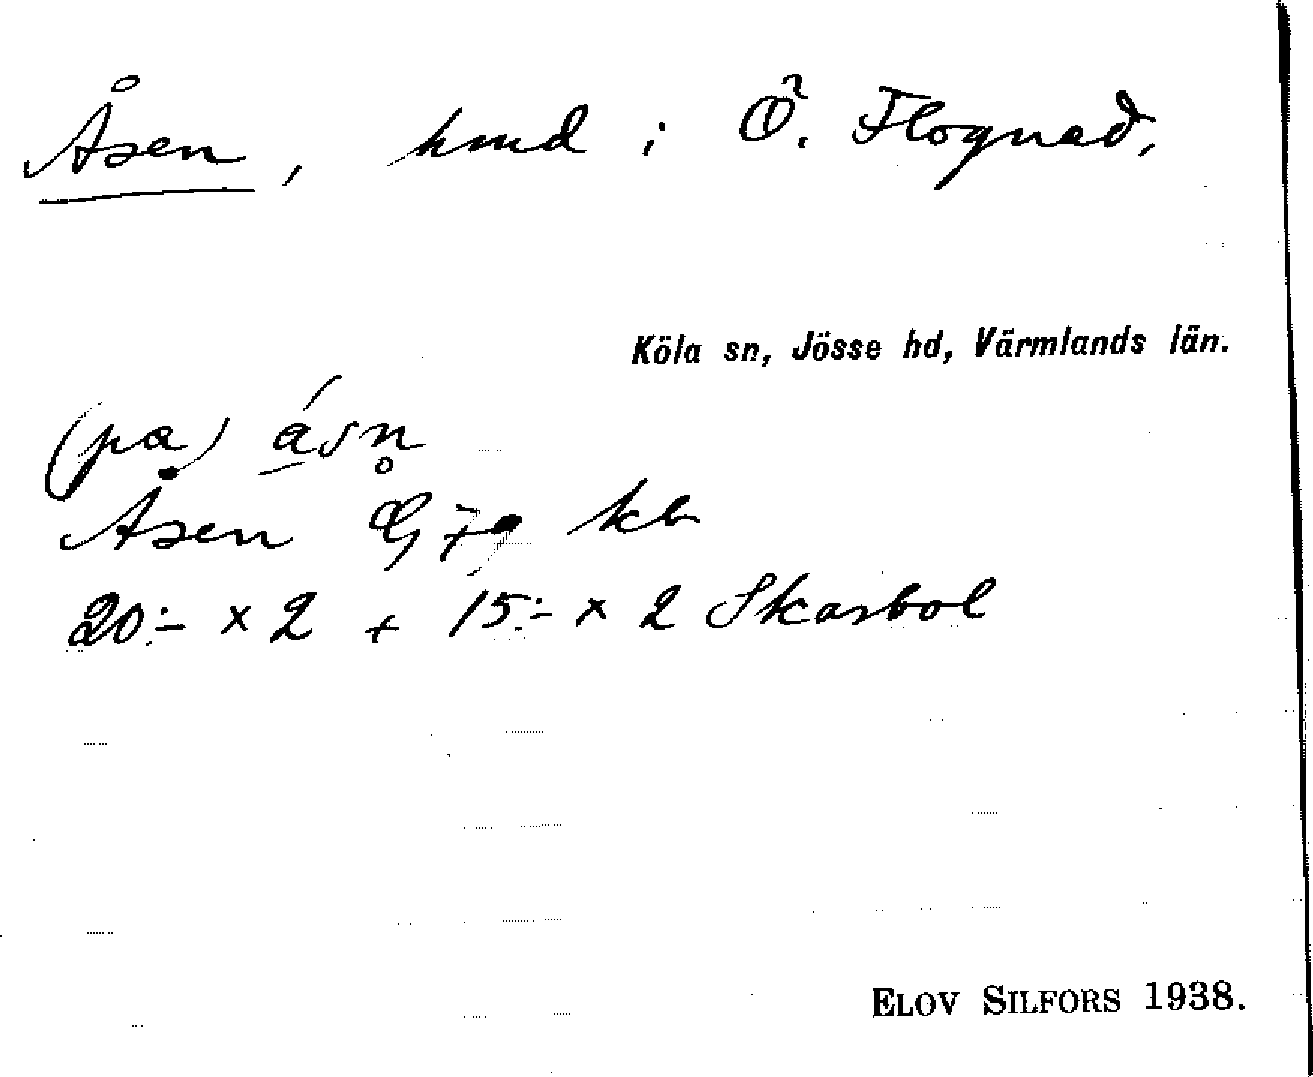 Åsen, hmd i Ö. Flognad,
Köla sn, Jösse hd, Värmlands län.
(på) åsn̥
Åsen G 79 kb
20:- x 2 + 15:- x 2 Skarbol
ELOV SILFORS 1938.